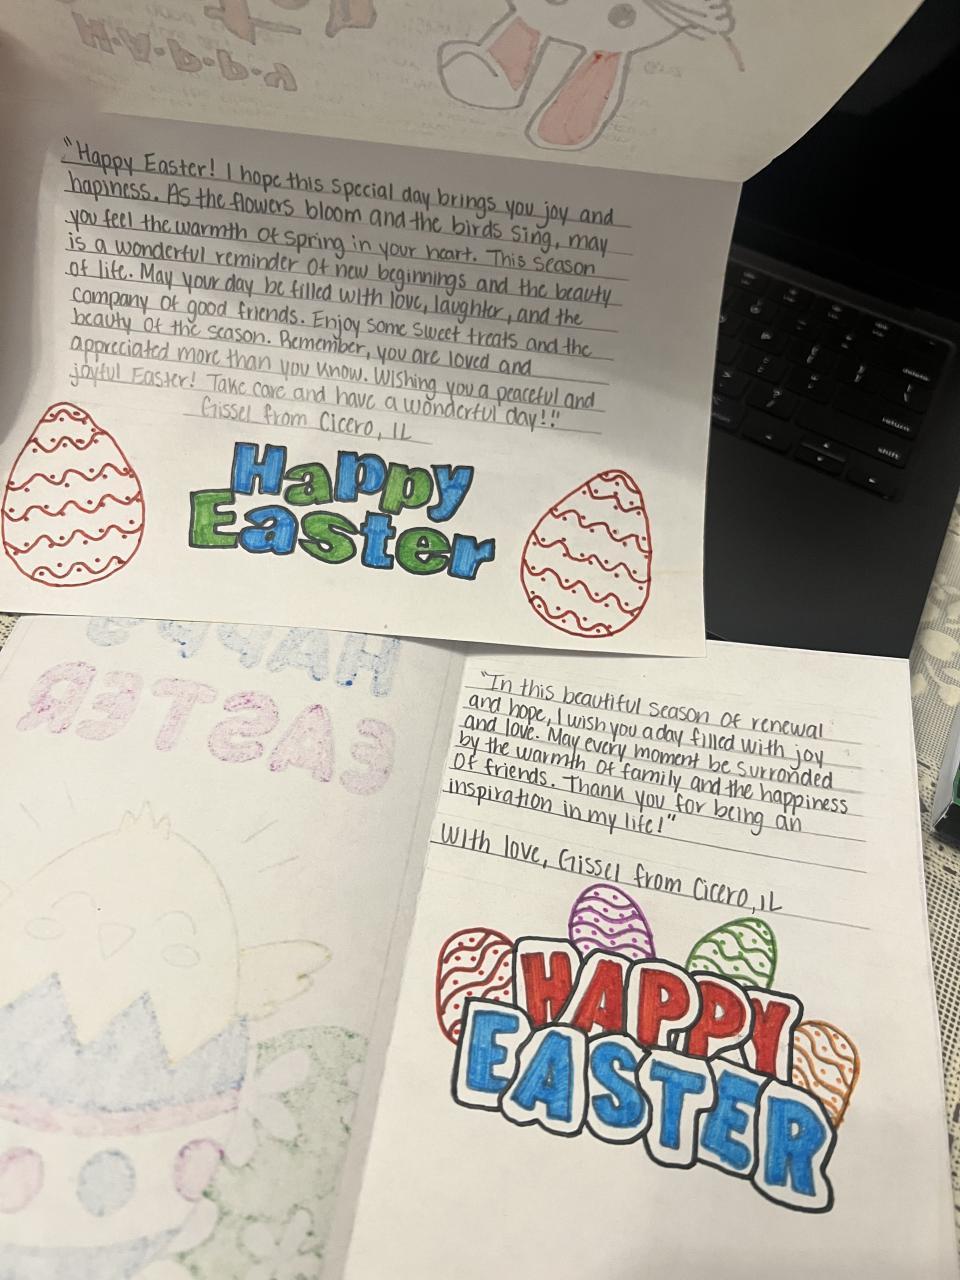 "Happy Easter! I hope this special day brings you joy and
hapiness. As the flowers bloom and the birds sing, may
you feel the warmth of spring in your heart. This season
is a wonderful reminder of new beginnings and the beauty
of life. May your day be filled with love, laughter, and the
company of good friends. Enjoy some sweet treats and the
beauty of the season. Remember, you are loved and
appreciated more than you know. Wishing you a peaceful and
joyful Easter! Take care and have a wonderful day!!"
Gissel from Cicero, IL
Happy
Easter
HAPPY
EASTER
"In this beautiful season of renewal
and hope, I wish you a day filled with joy
and love. May every moment be surronded
by the warmth of family and the happiness
of friends. Thank you for being an
inspiration in my life!"
With love, Gissel from Cicero, IL
HAPPY
EASTER
delete
return
shift